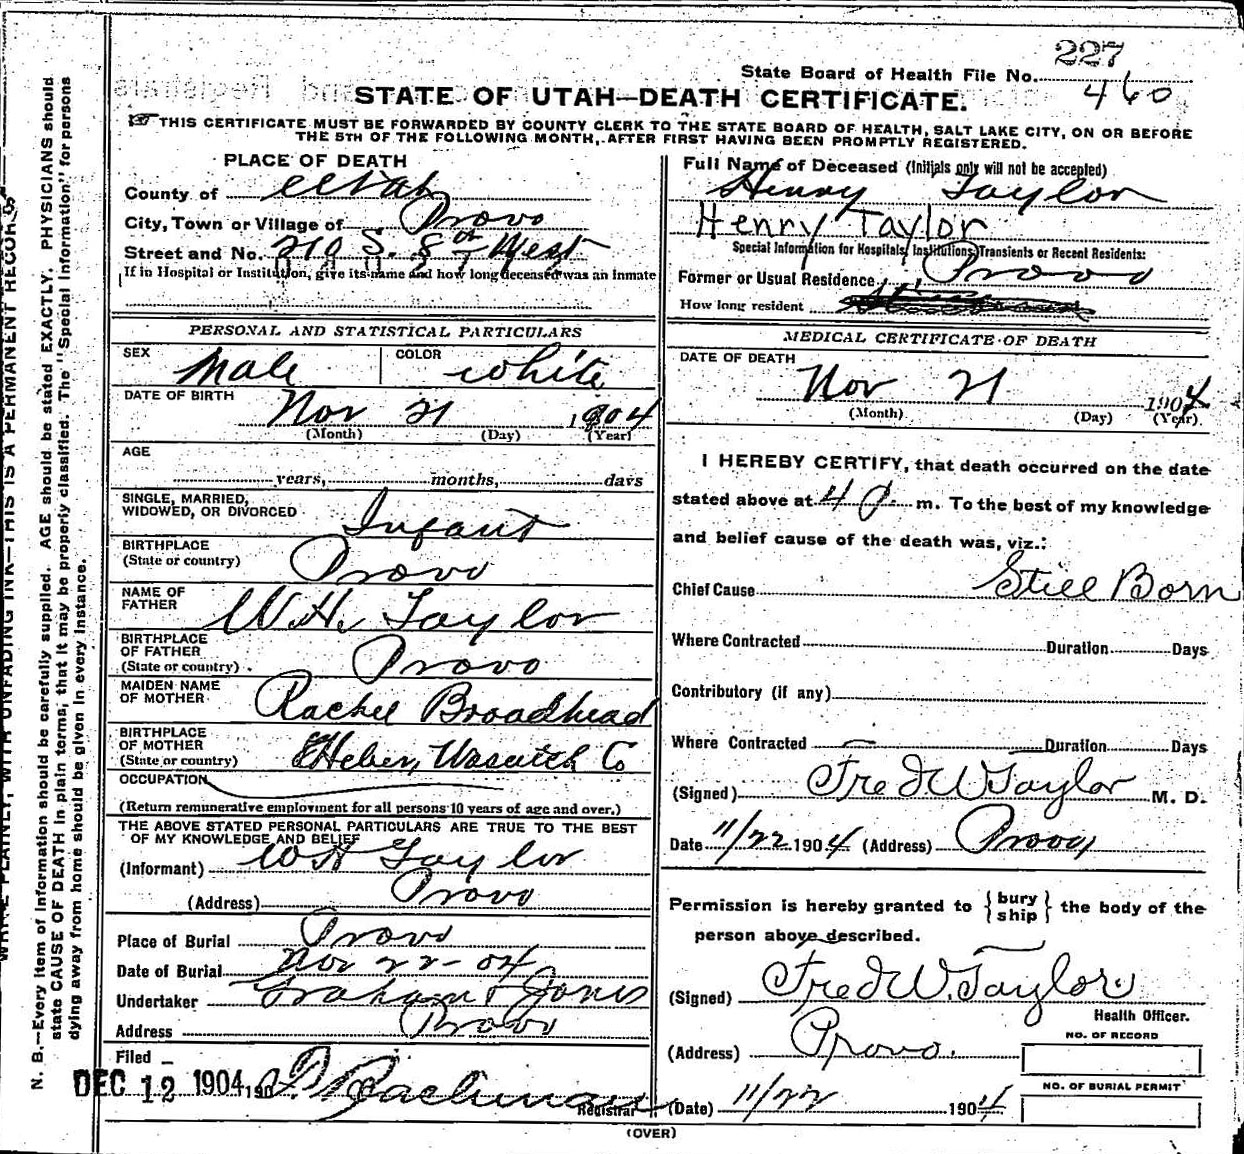 227
State Board of Health File No. 460
STATE OF UTAH—DEATH CERTIFICATE.
THIS CERTIFICATE MUST BE FORWARDED BY COUNTY CLERK TO THE STATE BOARD OF HEALTH, SALT LAKE CITY, ON OR BEFORE
THE 5TH OF THE FOLLOWING MONTH, AFTER FIRST HAVING BEEN PROMPTLY REGISTERED.
PLACE OF DEATH
County of Utah
City, Town or Village of Provo
Street and No. 210 S. 8th West
If in Hospital or Institution, give its name and how long deceased was an inmate
Full Name of Deceased (Initials only will not be accepted)
Henry Taylor
Henry Taylor
Special Information for Hospitals, Institutions, Transients or Recent Residents:
Former or Usual Residence Provo
How long resident
PERSONAL AND STATISTICAL PARTICULARS
SEX Male COLOR white
DATE OF BIRTH Nov 21 1904
(Month) (Day) (Year)
AGE
years, months, days
SINGLE, MARRIED,
WIDOWED, OR DIVORCED Infant
BIRTHPLACE
(State or country) Provo
NAME OF
FATHER W.H. Taylor
BIRTHPLACE
OF FATHER
(State or country) Provo
MAIDEN NAME
OF MOTHER Rachel Broadhead
BIRTHPLACE
OF MOTHER
(State or country) Heber, Wasatch Co
OCCUPATION
(Return remunerative employment for all persons 10 years of age and over.)
THE ABOVE STATED PERSONAL PARTICULARS ARE TRUE TO THE BEST
OF MY KNOWLEDGE AND BELIEF
(Informant) W H Taylor
(Address) Provo
Place of Burial Provo
Date of Burial Nov 22-04
Undertaker Graham & Jones
Address Provo
Filed
DEC 12 1904 190
Registrar
MEDICAL CERTIFICATE OF DEATH
DATE OF DEATH
Nov 21 1904
(Month) (Day) (Year)
I HEREBY CERTIFY, that death occurred on the date
stated above at 4 p. m. To the best of my knowledge
and belief cause of the death was, viz.:
Chief Cause Still Born
Where Contracted Duration Days
Contributory (if any)
Where Contracted Duration Days
(Signed) Fred W Taylor M. D.
Date 11/22 1904 (Address) Provo
Permission is hereby granted to {bury ship} the body of the
person above described.
(Signed) Fred W. Taylor
Health Officer.
(Address) Provo.
NO. OF RECORD
NO. OF BURIAL PERMIT
(Date) 11/22 1904
(OVER)
WRITE PLAINLY, WITH UNFADING INK—THIS IS A PERMANENT RECORD
N. B.—Every item of information should be carefully supplied. AGE should be stated EXACTLY. PHYSICIANS should
state CAUSE OF DEATH in plain terms, that it may be properly classified. The "Special Information" for persons
dying away from home should be given in every instance.